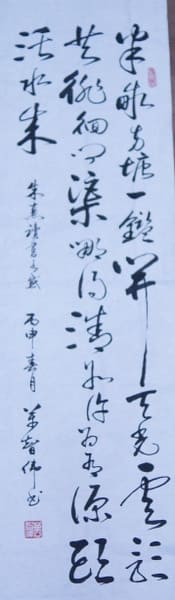 半畝方塘一鑑開天光雲影
共徘徊問渠哪得清如許為有源頭
活水來
朱熹讀書有感 丙申春月 智偉書